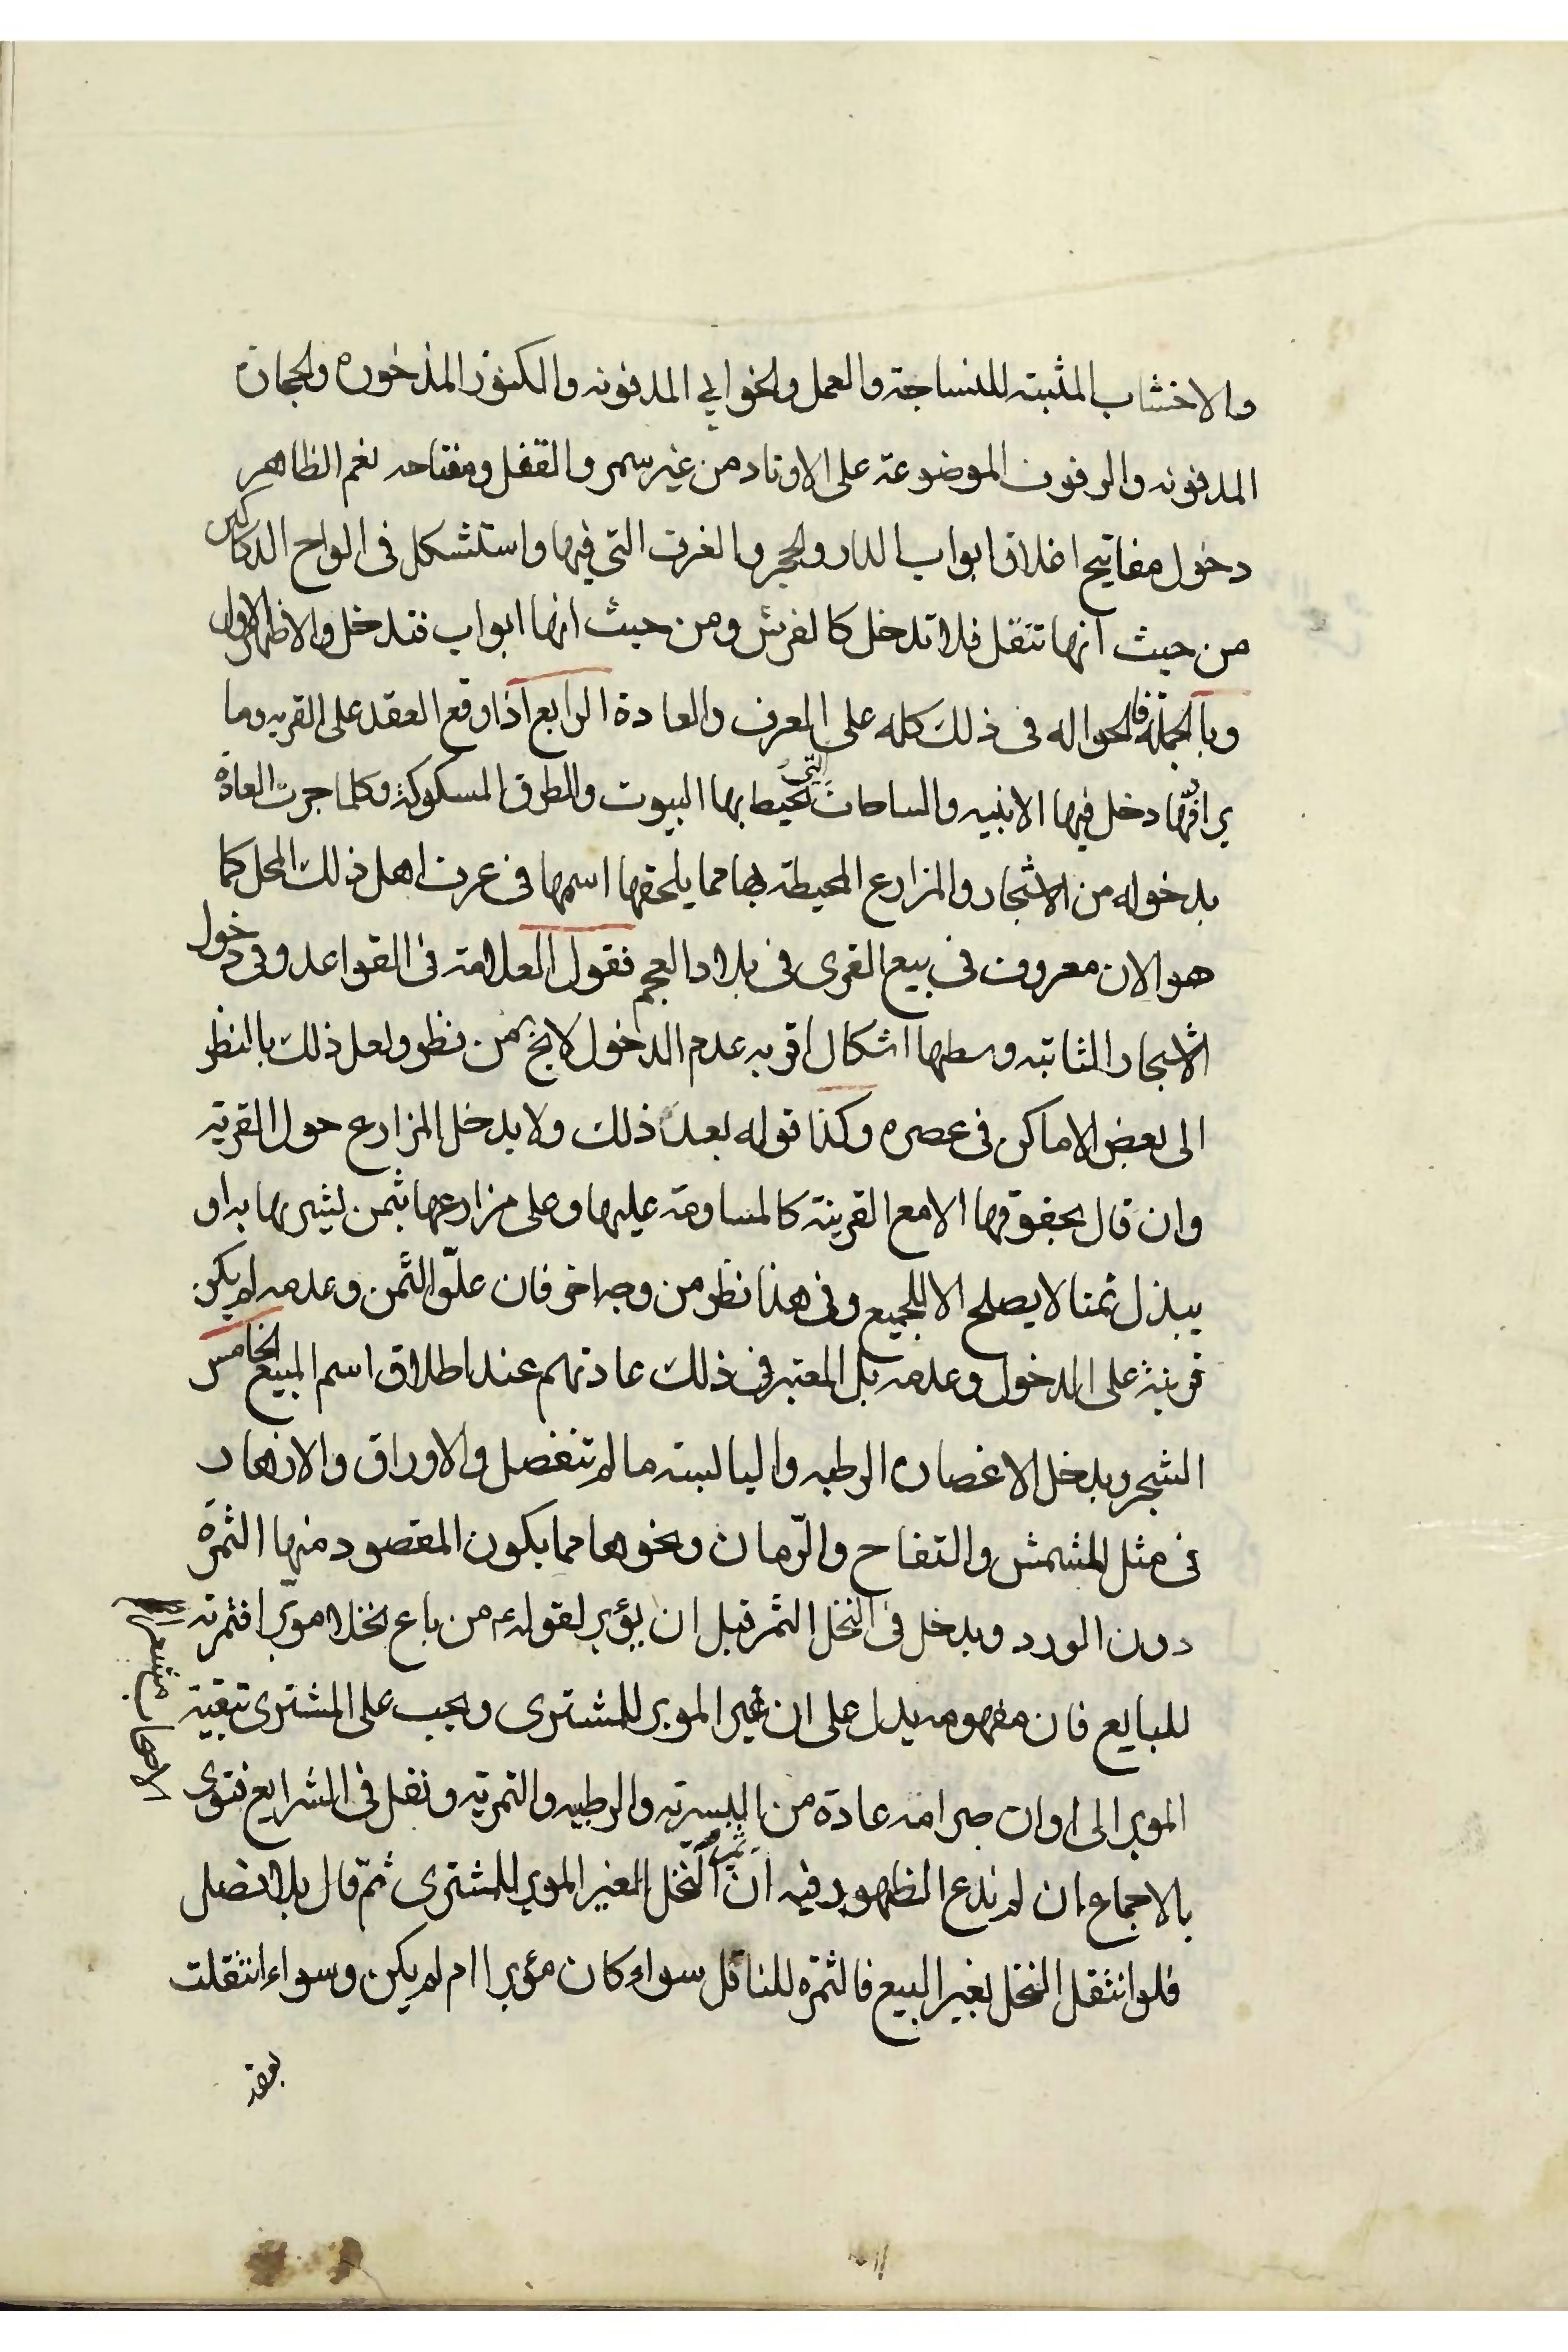 والاخشاب المثبته للنساجة والعمل والخوابي المدفونه والكنوز المذخوره والحجارة
المدفونه والرفوف الموضوعة على الاوتاد من غير سمر والقفل ومفتاحه نعم الظاهر
دخول مفاتيح اغلاق ابواب الدار والحجر والغرف التي فيها واستشكل في الواح الدكاكين
من حيث انها تنقل فلا تدخل كالفرش ومن حيث انها ابواب فتدخل والاظهر الاول
وبالجملة فالحواله في ذلك كله على العرف والعادة الرابع اذا وقع العقد على القريه وما
يرافقها دخل فيها الابنيه والساحات التي تحيط بها البيوت والطرق المسكوكة وكلما جرت العادة
بدخوله من الاشجار والمزارع المحيطة بها مما يلحقها اسمها في عرف اهل ذلك المحل كما
هو الان معروف في بيع القرى في بلاد العجم فقول العلامة في القواعد وفي دخول
الاشجار الثابته وسطها اشكال اقربه عدم الدخول لا يخ من نظر ولعل ذلك بالنظر
الى بعض الاماكن في عصره وكذا قوله بعد ذلك ولا يدخل المزارع حول القرية
وان قال بحقوقها الا مع القرينة كالمساومة عليها وعلى مزارعها بثمن يشتريها به او
يبذل ثمنا لا يصلح الا للجميع وفي هذا نظر من وجه اخر فان علو الثمن وعدمه لم يكن
قرينة على الدخول وعدمه بل المعتبر في ذلك عادتهم عند اطلاق اسم المبيع الخامس
الشجر ويدخل الاغصان الرطبه واليابسته ما لم تنفصل والاوراق والازهار
في مثل المشمش والتفاح والرّمان ونحوها مما يكون المقصود منها الثمرة
دون الورد ويدخل في النخل الثمر قبل ان يؤبر لقوله ع من باع نخلا موبّرا فثمرته
للبايع فان مفهومه يدل على ان غير الموبر للمشترى ويجب على المشترى تبقية
الموبر الى اوان صرامه عادة من البسريه والرطبيه والتمريه ونقل في الشرايع فتوى
الاصحاب
بالاجماع ان لم ندع الظهور فيه ان ثمر النخل الغير الموبر للمشترى ثمّ قال بلا فصل
فلو انتقل النخل بغير البيع فالثمره للناقل سواء كان مؤبرا ام لم يكن وسواء انتقلت
بعقد